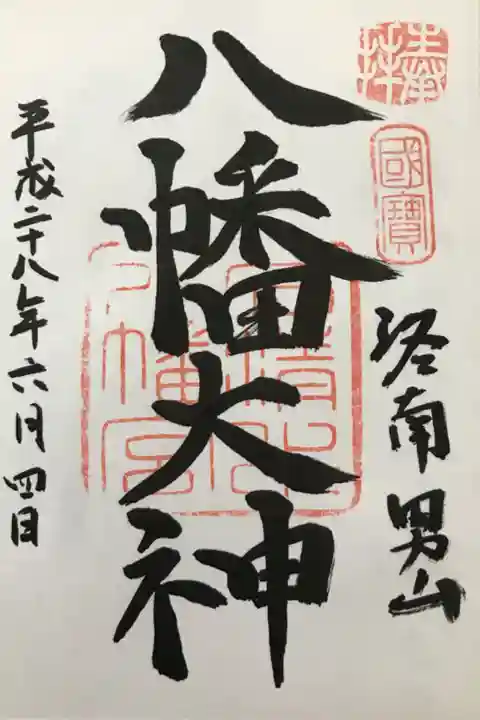 奉拝
國寶
洛南 男山
八幡大神
石清水八幡宮
平成二十八年六月四日